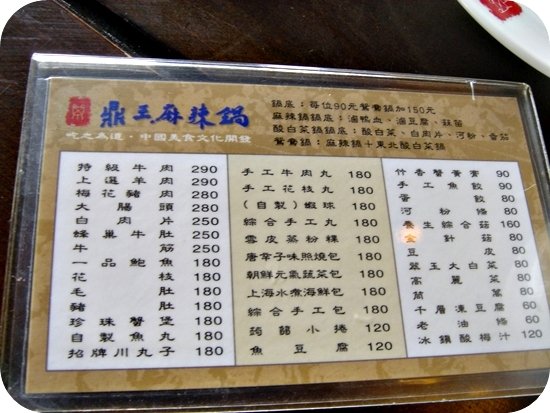 鼎王麻辣鍋
吃之為道‧中國美食文化開發
鍋底：每位90元鴛鴦鍋加150元
麻辣鍋鍋底：滷鴨血、滷豆腐、蒜苗
酸白菜鍋鍋底：酸白菜、白肉片、河粉、番茄
鴛鴦鍋：麻辣鍋＋東北酸白菜鍋
特級牛肉 290
上選羊肉 290
梅花豬肉 290
大腸頭 280
白肉片 250
蜂巢牛肚 250
牛筋 250
一品鮑魚 180
花枝 180
毛肚 180
豬肚 180
珍珠蟹堡 180
自製魚丸 180
招牌川丸子 180
手工牛肉丸 180
手工花枝丸 180
（自製）蝦球 180
綜合手工丸 180
雪皮蒸粉粿 180
唐辛子味照燒包 180
朝鮮元氣蔬菜包 180
上海水煮海鮮包 180
綜合手工包 180
蒟蒻小捲 120
魚豆腐 120
竹香蟹黃膏 90
手工魚餃 90
蛋餃 80
河粉條 80
養生綜合菇 160
金針菇 80
豆皮 80
翠玉大白菜 80
高麗菜 80
茼蒿 80
千層凍豆腐 60
老油條 60
冰鎮酸梅汁 120